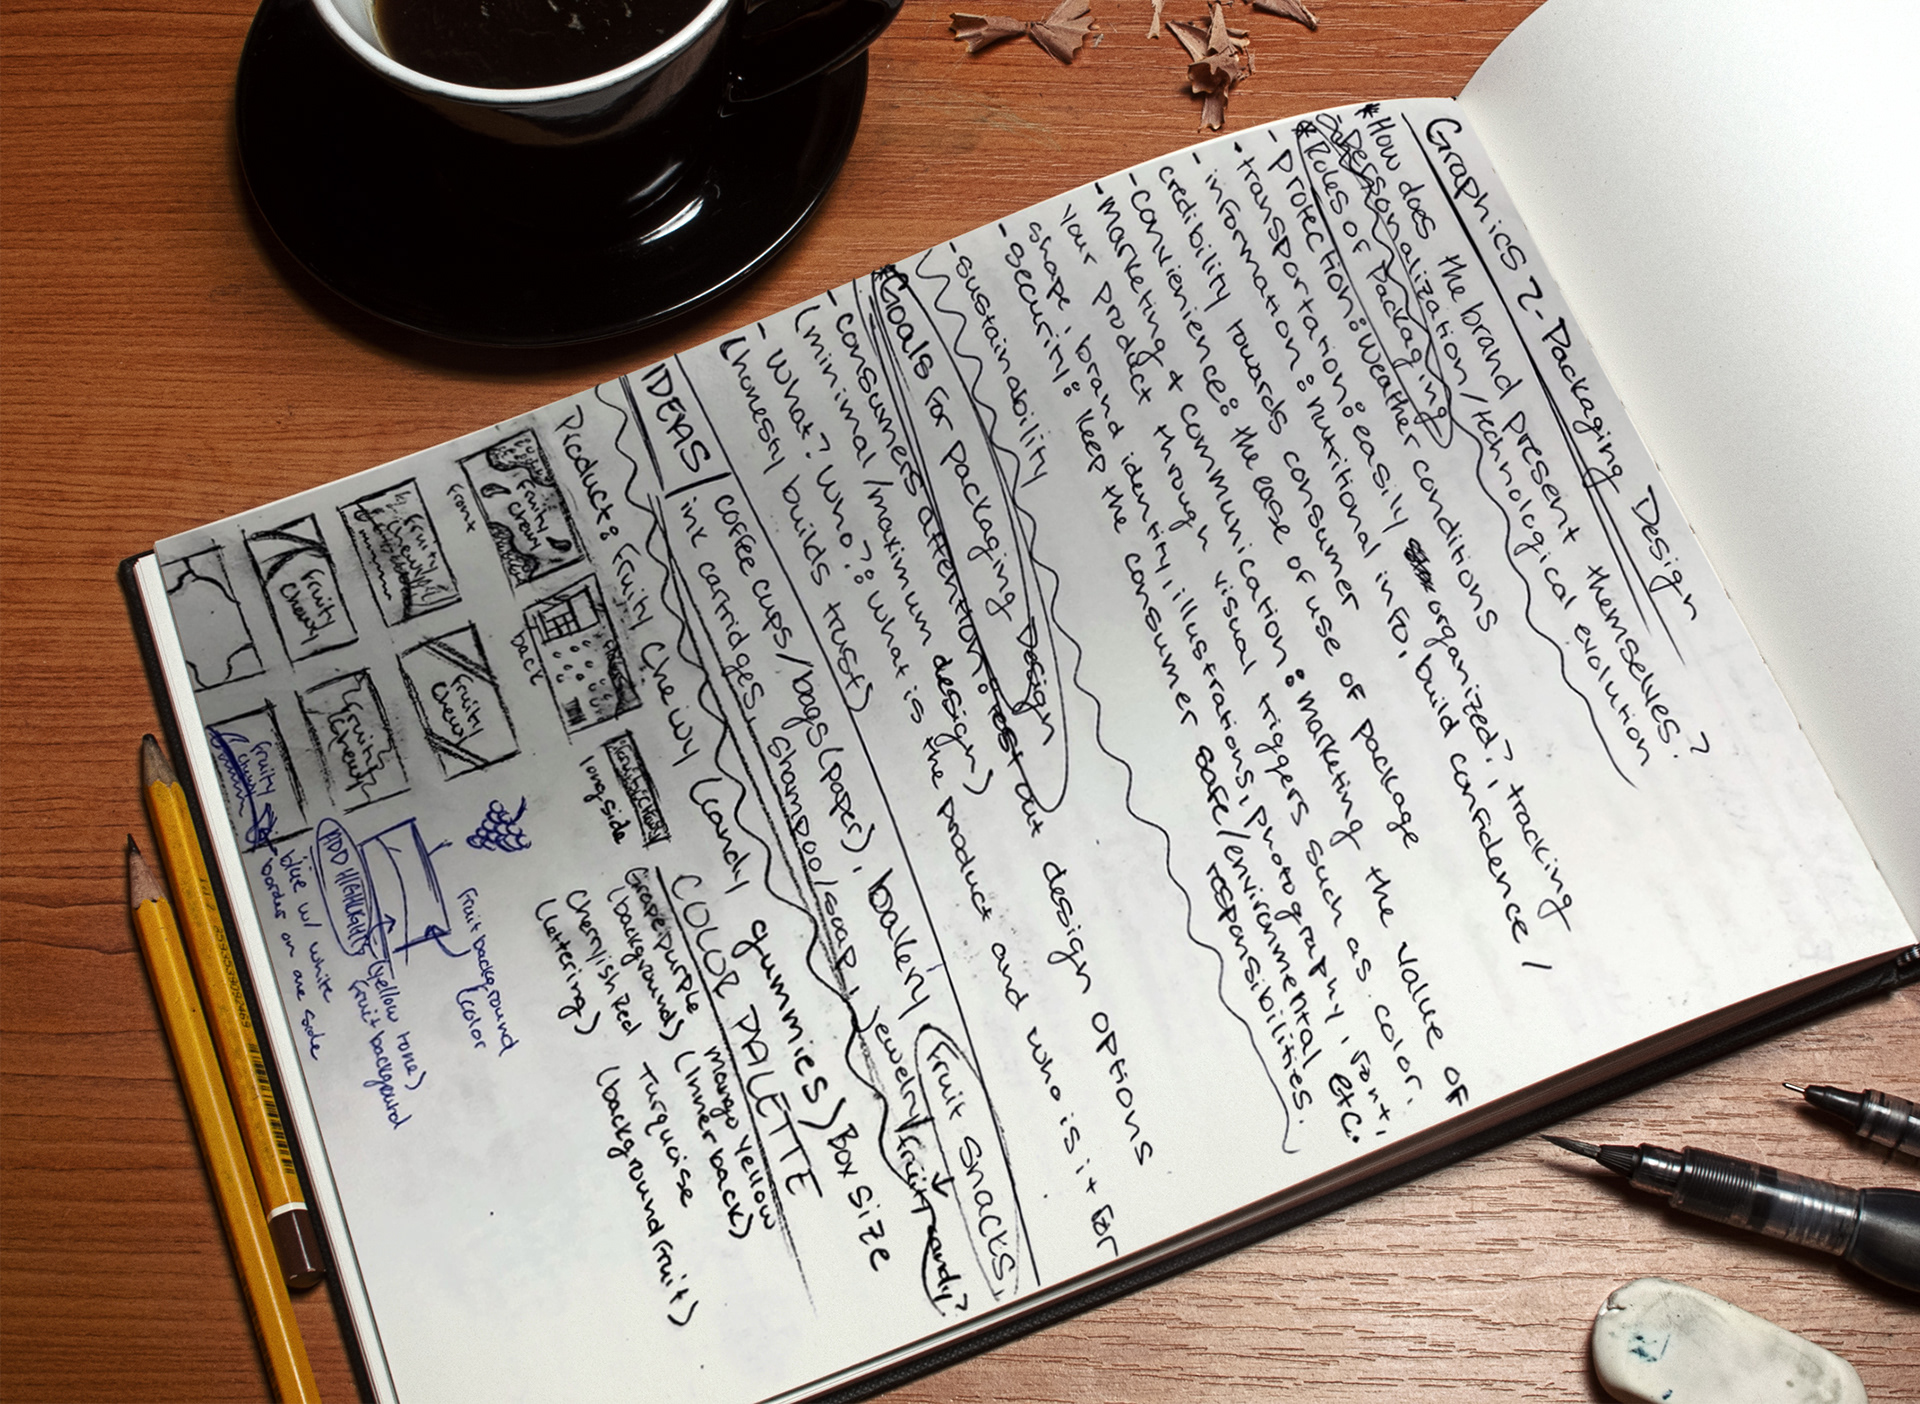 Graphics 2 - Packaging Design
*How does the brand present themselves?
- Personalization/technological evolution
*Roles of Packaging
- Protection: Weather conditions
- transportation: easily organized?, tracking
- information: nutritional info, build confidence /
credibility towards consumer
- convienience: the ease of use of package
- Marketing & communication: Marketing the value of
your product through visual triggers such as color,
shape, brand identity, illustrations, photography, font, etc.
- security: keep the consumer safe/environmental
- sustainability responsibilities.
*Goals for Packaging Design
- consumers attention: test out design options
(minimal/maximum design)
- What? Who?: what is the product and who is it for
(honesty builds trust)
IDEAS / coffee cups/bags (paper), bakery Fruit Snacks
ink cartridges, shampoo/soap, jewelry, fruit candy?
Product: Fruity Chewy (candy gummies) Box Size
Fruity Chewy
front
back
Fruity Chewy
long side
COLOR PALETTE
Grape purple
(background)
Mango Yellow
(inner back)
Cherryish Red
(lettering)
Turquoise
(background fruit)
Fruity
Chewy
Fruity
Chewy
Fruity
Chewy
Fruity
Chewy
Fruity
Chewy
fruit background
color
ADD HIGHLIGHTS
(yellow tone)
fruit background
blue w/ white
border on one side